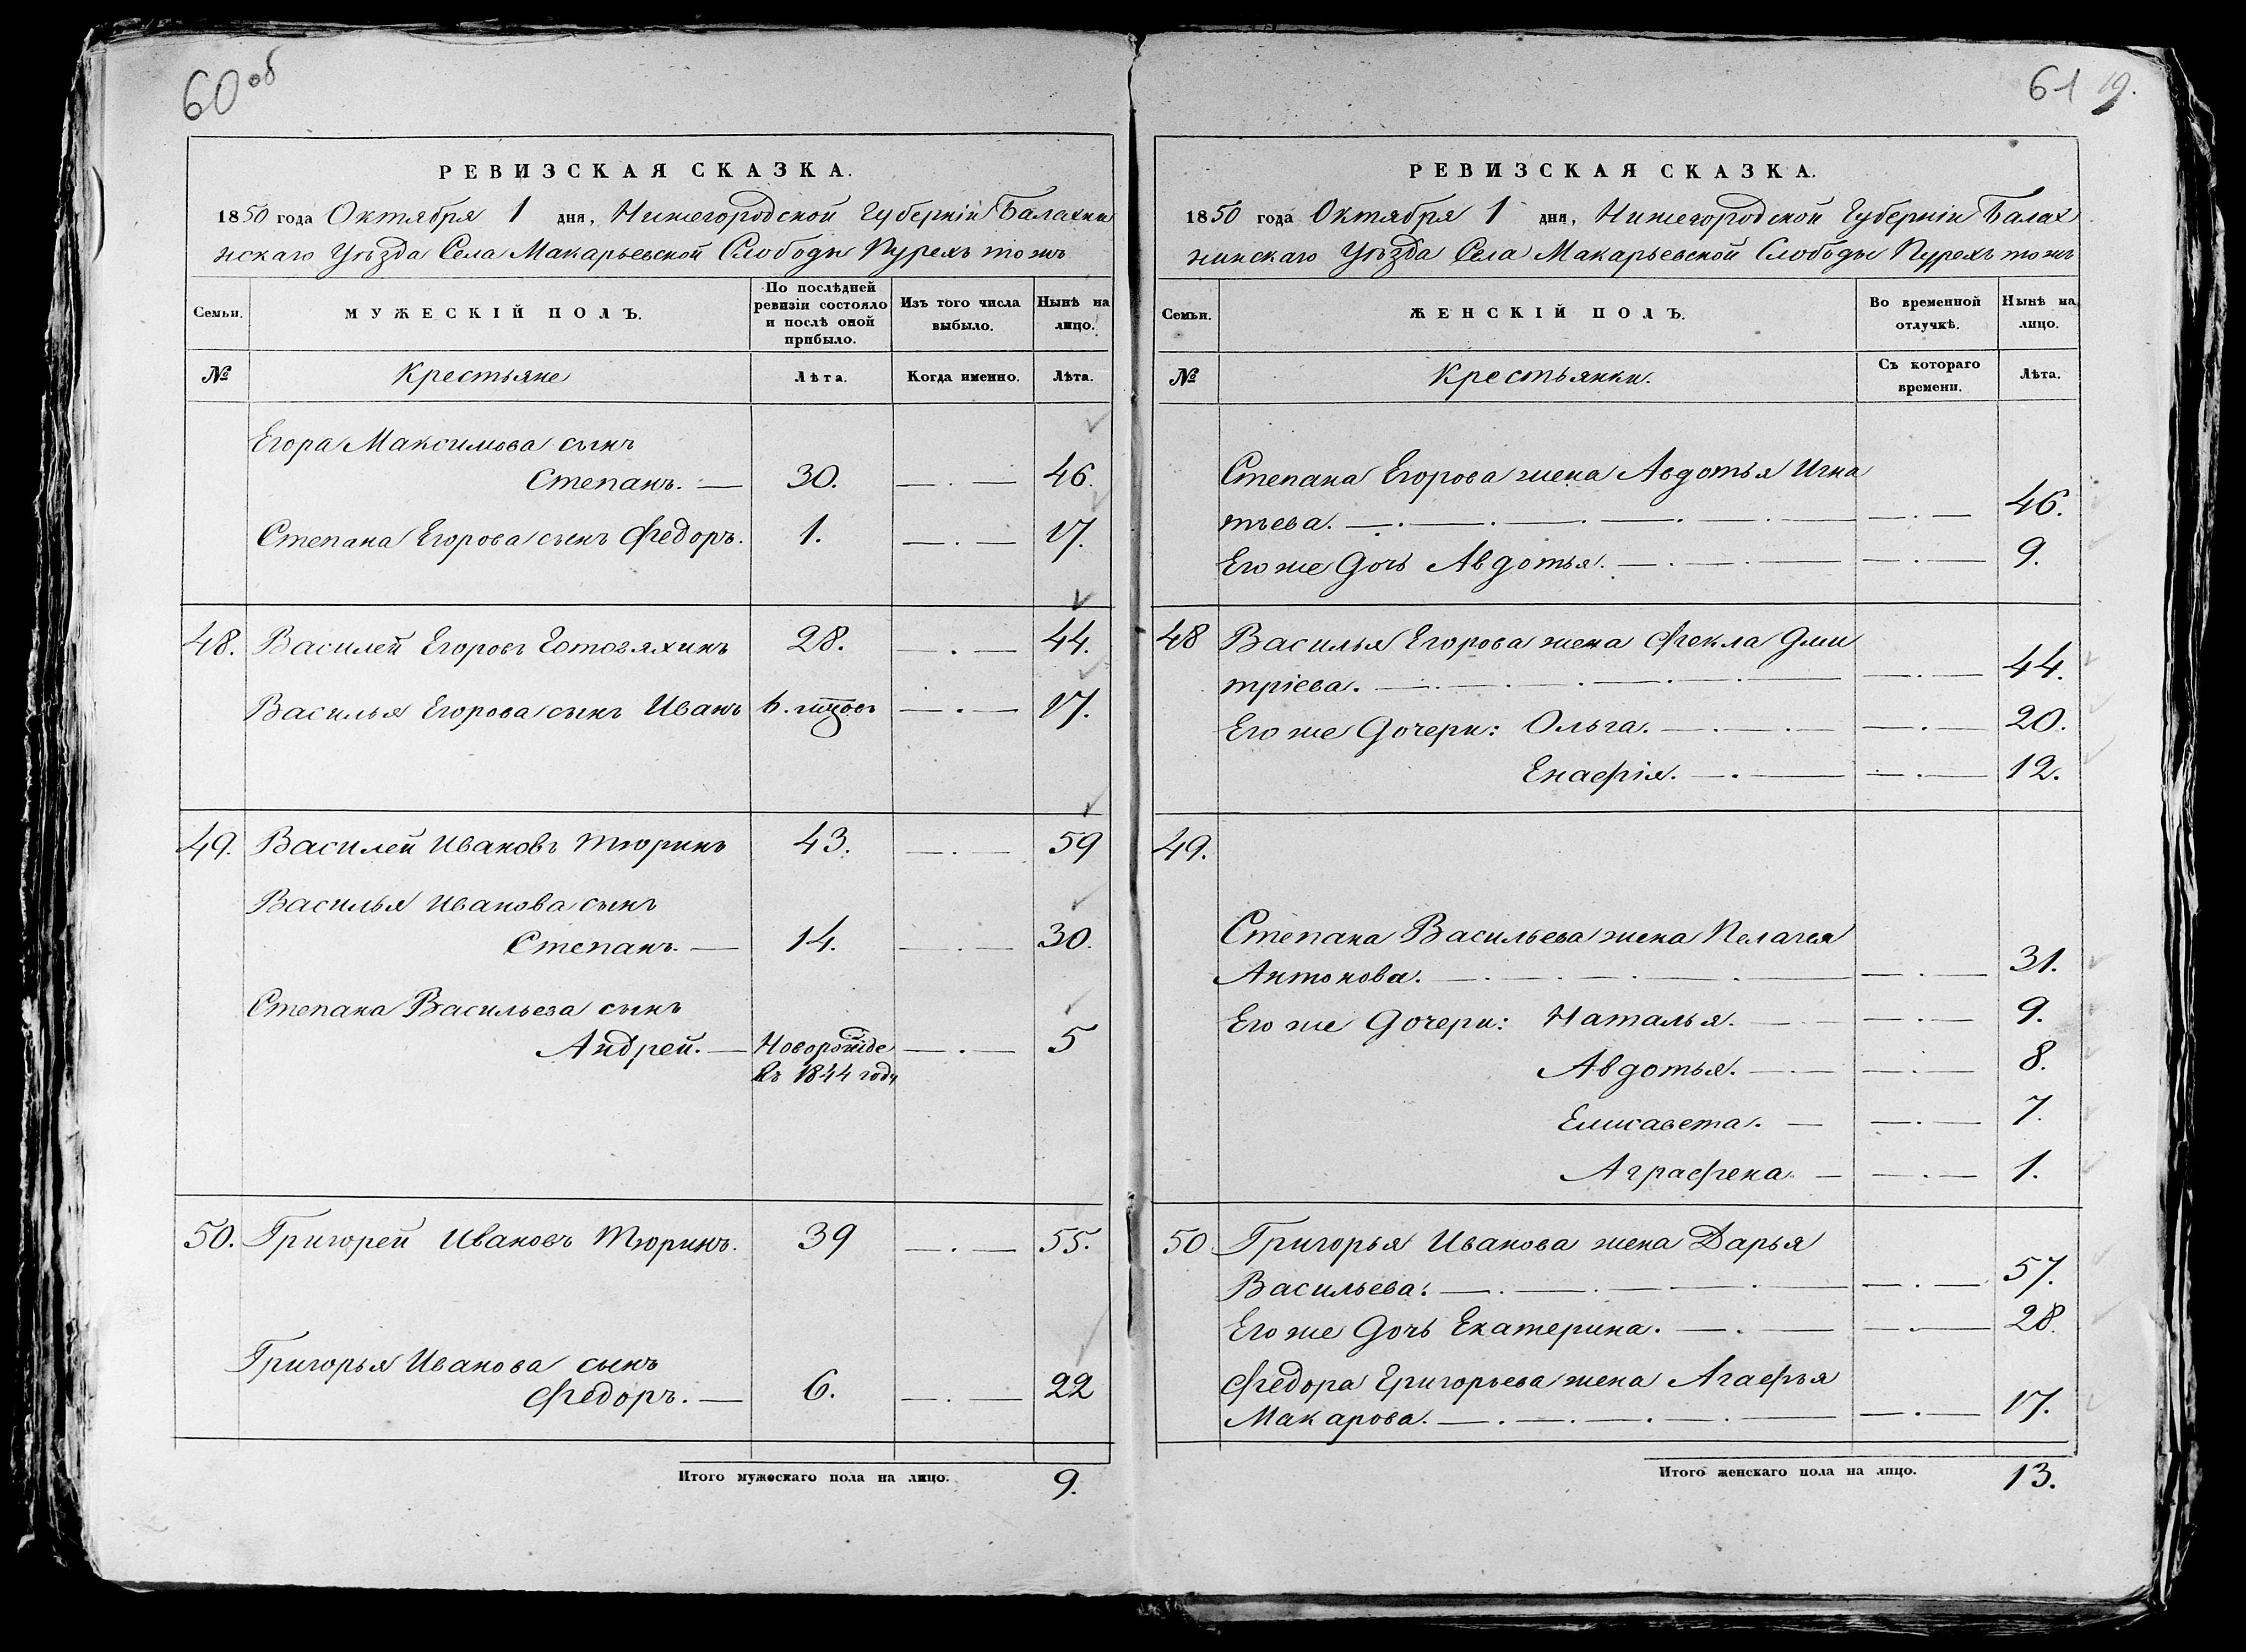 60 об
РЕВИЗСКАЯ СКАЗКА.
1850 года Октября 1 дня, Нижегородской Губерніи Балахни
нскаго Уѣзда Села Макарьевской Слободы Пурехъ тожъ
Семьи. МУЖЕСКІЙ ПОЛЪ. По послѣдней ревизіи состояло и послѣ оной прибыло. Изъ того числа выбыло. Нынѣ на лицо.
№ Крестьяне Лѣта. Когда именно. Лѣта.
Егора Максимова сынъ
Степанъ. — 30. — . — 46.
Степана Егорова сынъ Федоръ. 1. — . — 17.
48. Василей Егоровъ 28. — . — 44.
Василья Егорова сынъ Иванъ — . — 17.
49. Василей Ивановъ Тюринъ 43. — . — 59
Василья Иванова сынъ
Степанъ. — 14. — . — 30.
Степана Васильева сынъ
Андрей. — Новорожде — . — 5
въ 1844 году
50. Григорей Ивановъ Тюринъ. 39 — . — 55.
Григорья Иванова сынъ
Федоръ. — 6. — . — 22
Итого мужескаго пола на лицо. 9.
61 19.
РЕВИЗСКАЯ СКАЗКА.
1850 года Октября 1 дня, Нижегородской Губерніи Балах
нинскаго Уѣзда Села Макарьевской Слободы Пурехъ тожъ
Семьи. ЖЕНСКІЙ ПОЛЪ. Во временной отлучкѣ. Нынѣ на лицо.
№ Крестьянки. Съ котораго времени. Лѣта.
Степана Егорова жена Авдотья Игна
тьева. — . — 46.
Его же Дочь Авдотья. — . — 9.
48 Василья Егорова жена Фекла Дми
тріева. — . — 44.
Его же Дочери: Ольга. — . — 20.
Енафія. — . — 12.
49.
Степана Васильева жена Пелагея
Антонова. — . — 31.
Его же Дочери: Наталья. — . — 9.
Авдотья. — . — 8.
Елисавета. — . — 7.
Аграфена — . — 1.
50 Григорья Иванова жена Дарья
Васильева. — . — 57.
Его же Дочь Екатерина. — . — 28.
Федора Григорьева жена Агафья
Макарова. — . — 17.
Итого женскаго пола на лицо. 13.